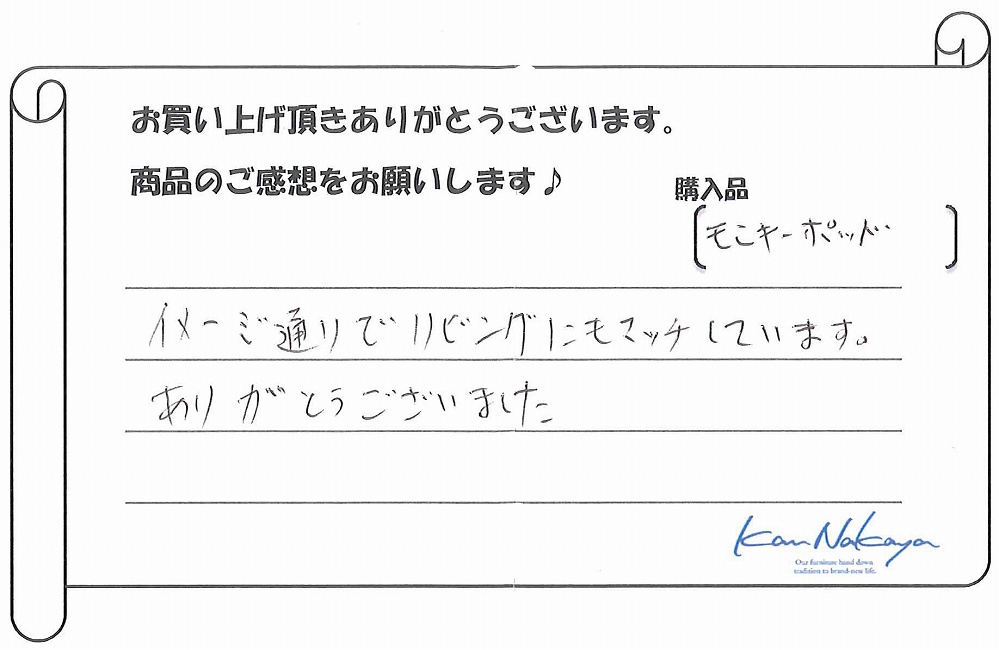 お買い上げ頂きありがとうございます。
商品のご感想をお願いします♪
購入品
モンキーポッド
イメージ通りでリビングにもマッチしています。
ありがとうございました
Kan Nakaya
Our furniture hand down
tradition to brand-new life.